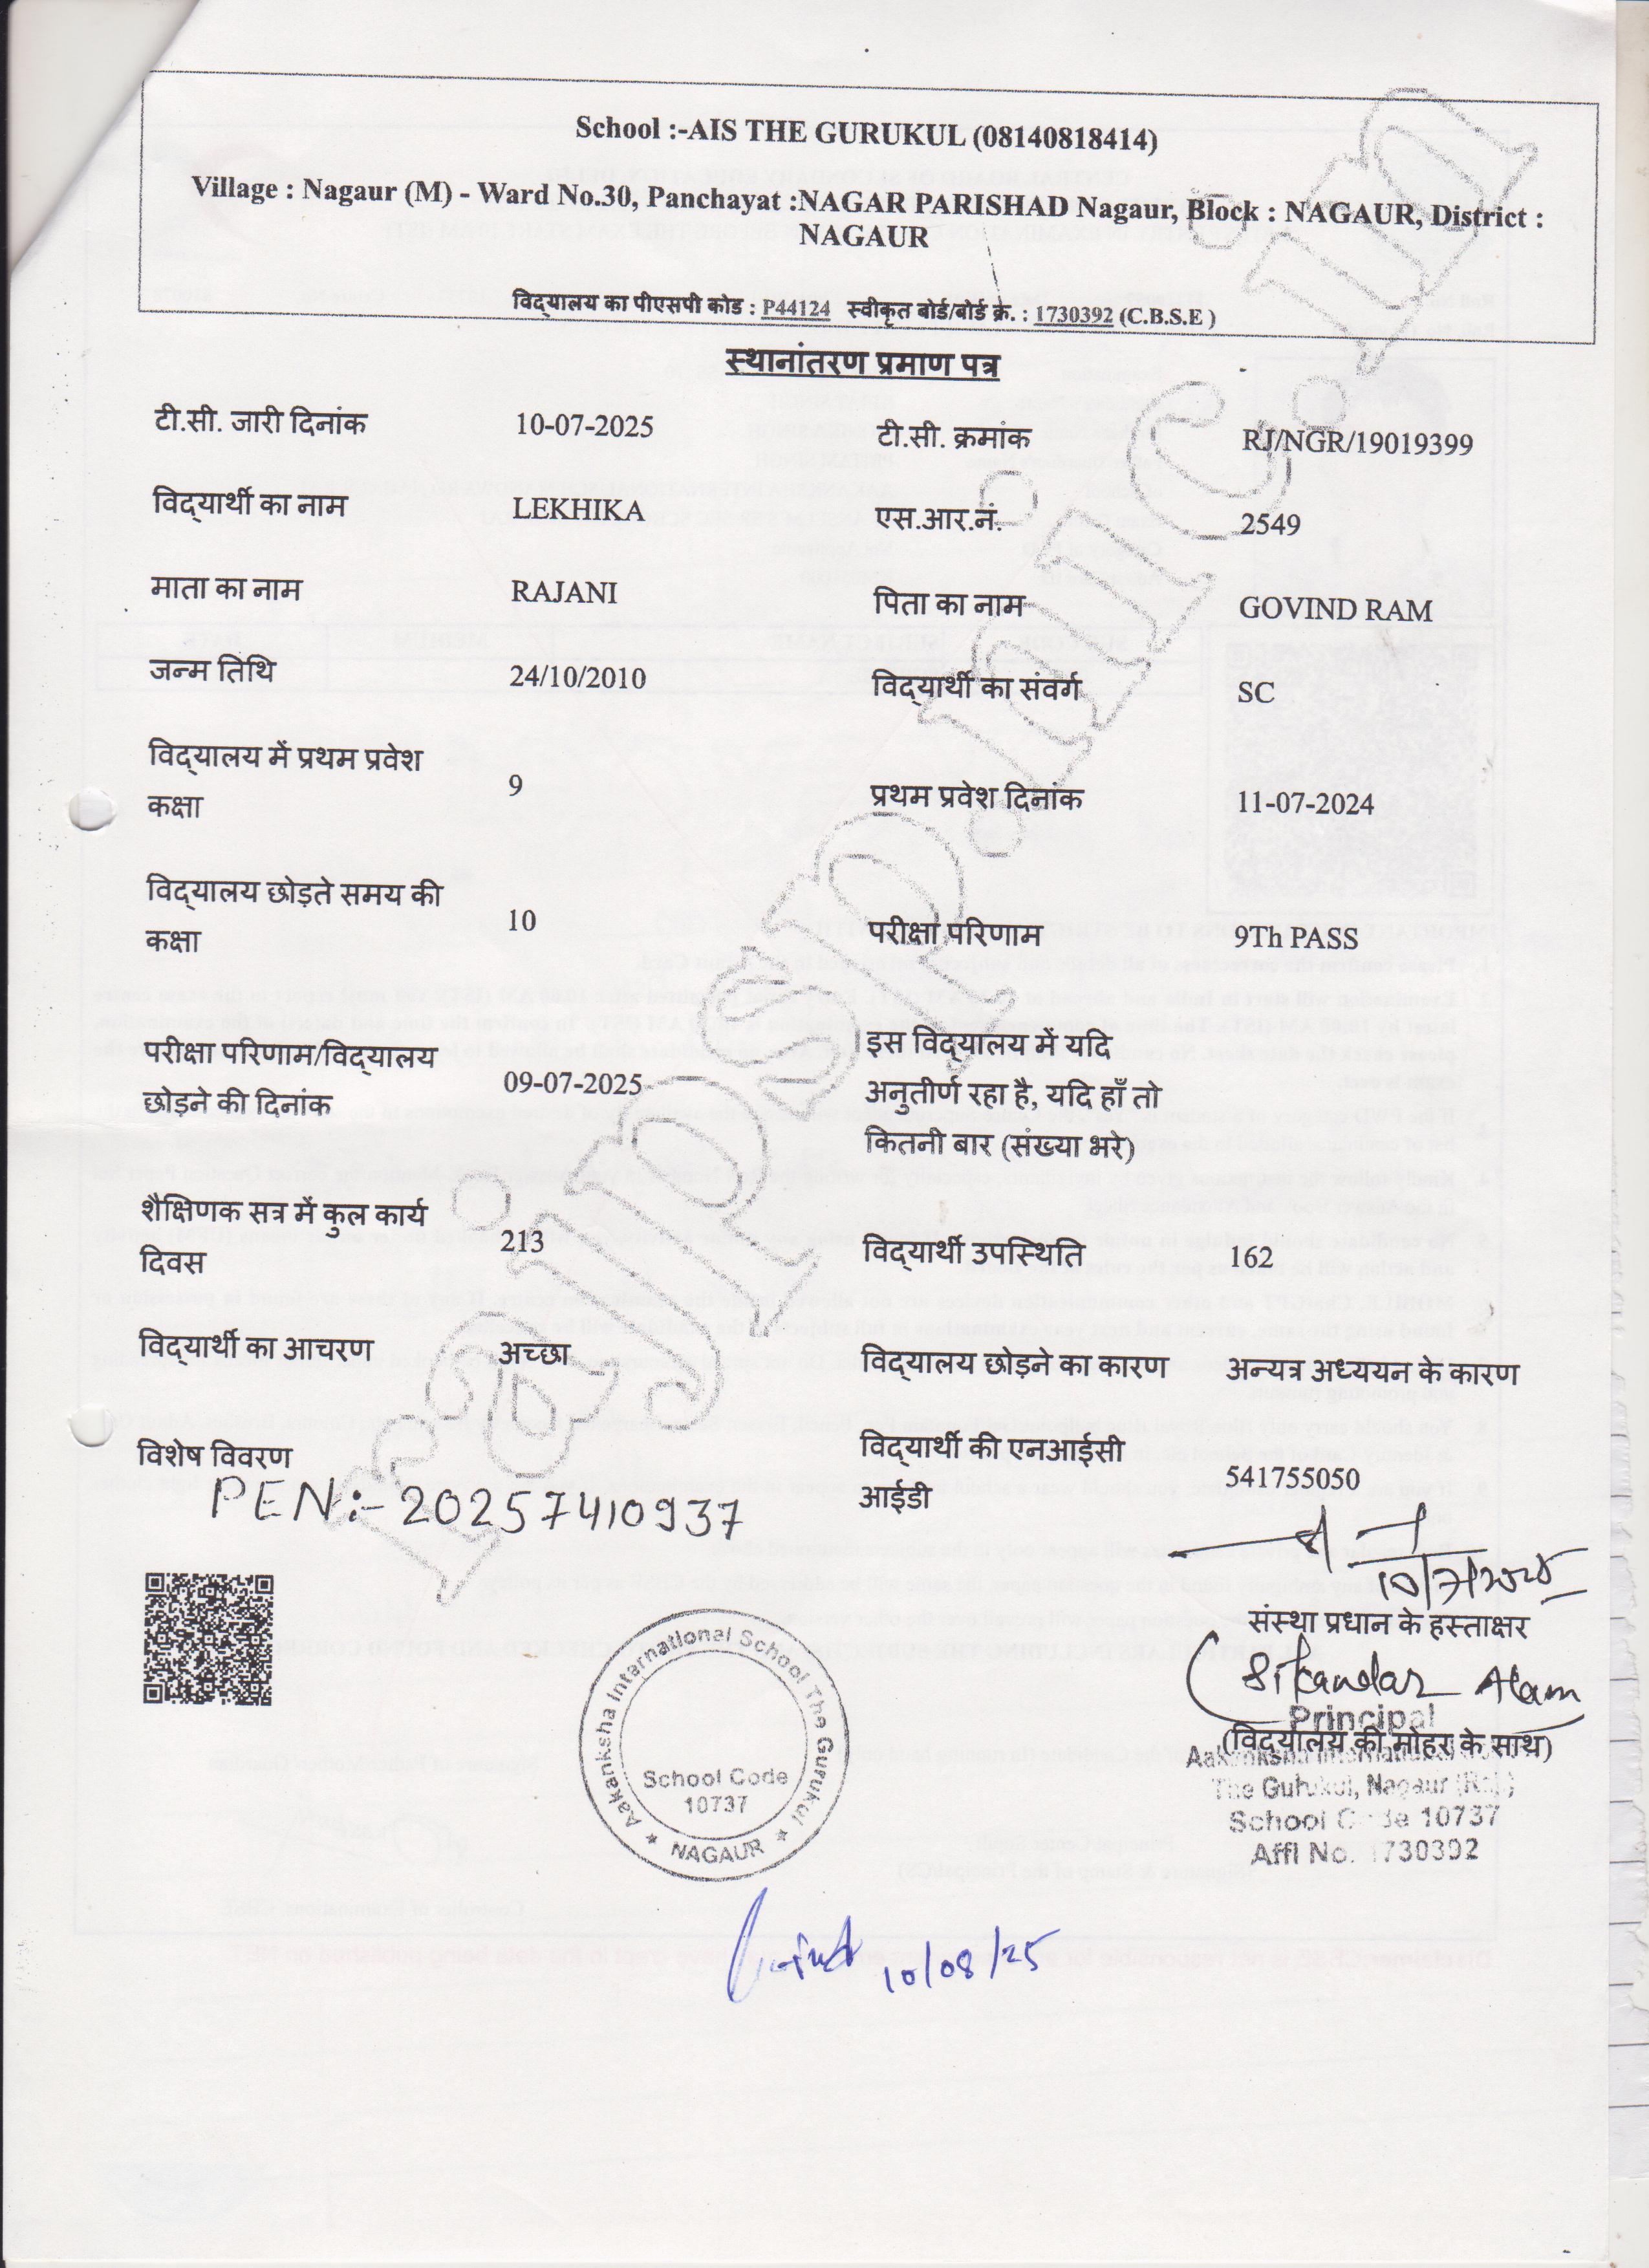 School :-AIS THE GURUKUL (08140818414)
Village : Nagaur (M) - Ward No.30, Panchayat :NAGAR PARISHAD Nagaur, Block : NAGAUR, District :
NAGAUR
विद्यालय का पीएसपी कोड : P44124 स्वीकृत बोर्ड/बोर्ड क्रे. : 1730392 (C.B.S.E )
स्थानांतरण प्रमाण पत्र
टी.सी. जारी दिनांक 10-07-2025 टी.सी. क्रमांक RJ/NGR/19019399
विद्यार्थी का नाम LEKHIKA एस.आर.नं. 2549
माता का नाम RAJANI पिता का नाम GOVIND RAM
जन्म तिथि 24/10/2010 विद्यार्थी का संवर्ग SC
विद्यालय में प्रथम प्रवेश
कक्षा 9 प्रथम प्रवेश दिनांक 11-07-2024
विद्यालय छोड़ते समय की
कक्षा 10 परीक्षा परिणाम 9Th PASS
परीक्षा परिणाम/विद्यालय
छोड़ने की दिनांक 09-07-2025
इस विद्यालय में यदि
अनुतीर्ण रहा है, यदि हाँ तो
कितनी बार (संख्या भरे)
शैक्षिणक सत्र में कुल कार्य
दिवस 213 विद्यार्थी उपस्थिति 162
विद्यार्थी का आचरण अच्छा विद्यालय छोड़ने का कारण अन्यत्र अध्ययन के कारण
विशेष विवरण
PEN:- 20257410937
विद्यार्थी की एनआईसी
आईडी 541755050
10/7/2025
संस्था प्रधान के हस्ताक्षर
(Sikandar Alam
Principal
(विद्यालय की मोहर के साथ)
Aakanksha International
The Gurukul, Nagaur (Raj.)
School Code 10737
Affl No. 1730392
Aakanksha International School The Gurukul
School Code
10737
★ NAGAUR ★
10/08/25
rajpsp.nic.in